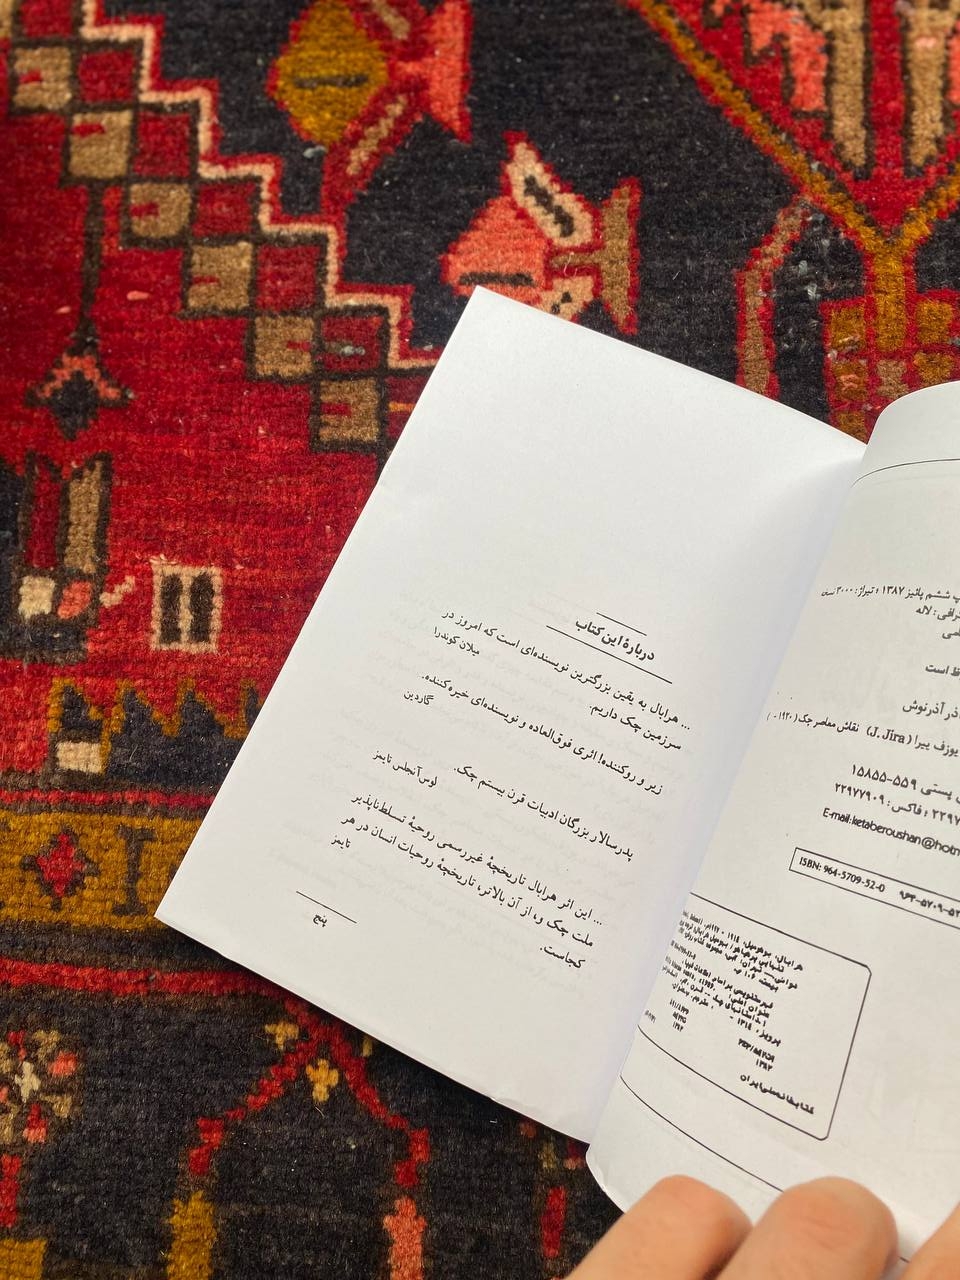 پ ششم پائیز ۱۳۸۷ ؛ تیراژ: ۳۰۰۰ نسخه
لاله
است
آذر آذرنوش
یوزف ییرا (J. Jira) نقاش معاصر چک (۱۹۲۰ - )
پستی ۵۵۹-۱۵۸۵۵
فاکس: ۲۲۹۷۷۹۰۹
E-mail:ketaberoushan@hotm
ISBN: 964-5709-52-0 ۹۶۴-۵۷۰۹-۵۲
هرابال، بوهومیل، ۱۹۱۴ - ۱۹۹۷م.
تنهایی پرهیاهو / بوهومیل هرابال؛
فهرستنویسی براساس اطلاعات فیپا.
عنوان اصلی:
کتابخانه ملی ایران
دربارهٔ این کتاب
... هرابال به یقین بزرگترین نویسنده‌ای است که امروز در
سرزمین چک داریم.
میلان کوندرا
زیر و روکننده! اثری فوق‌العاده و نویسنده‌ای خیره‌کننده.
گاردین
پدرسالار بزرگان ادبیات قرن بیستم چک.
لوس آنجلس تایمز
... این اثر هرابال تاریخچهٔ غیررسمی روحیهٔ تسلط‌ناپذیر
ملت چک و، از آن بالاتر، تاریخچهٔ روحیات انسان در هر
کجاست.
تایمز
پنج